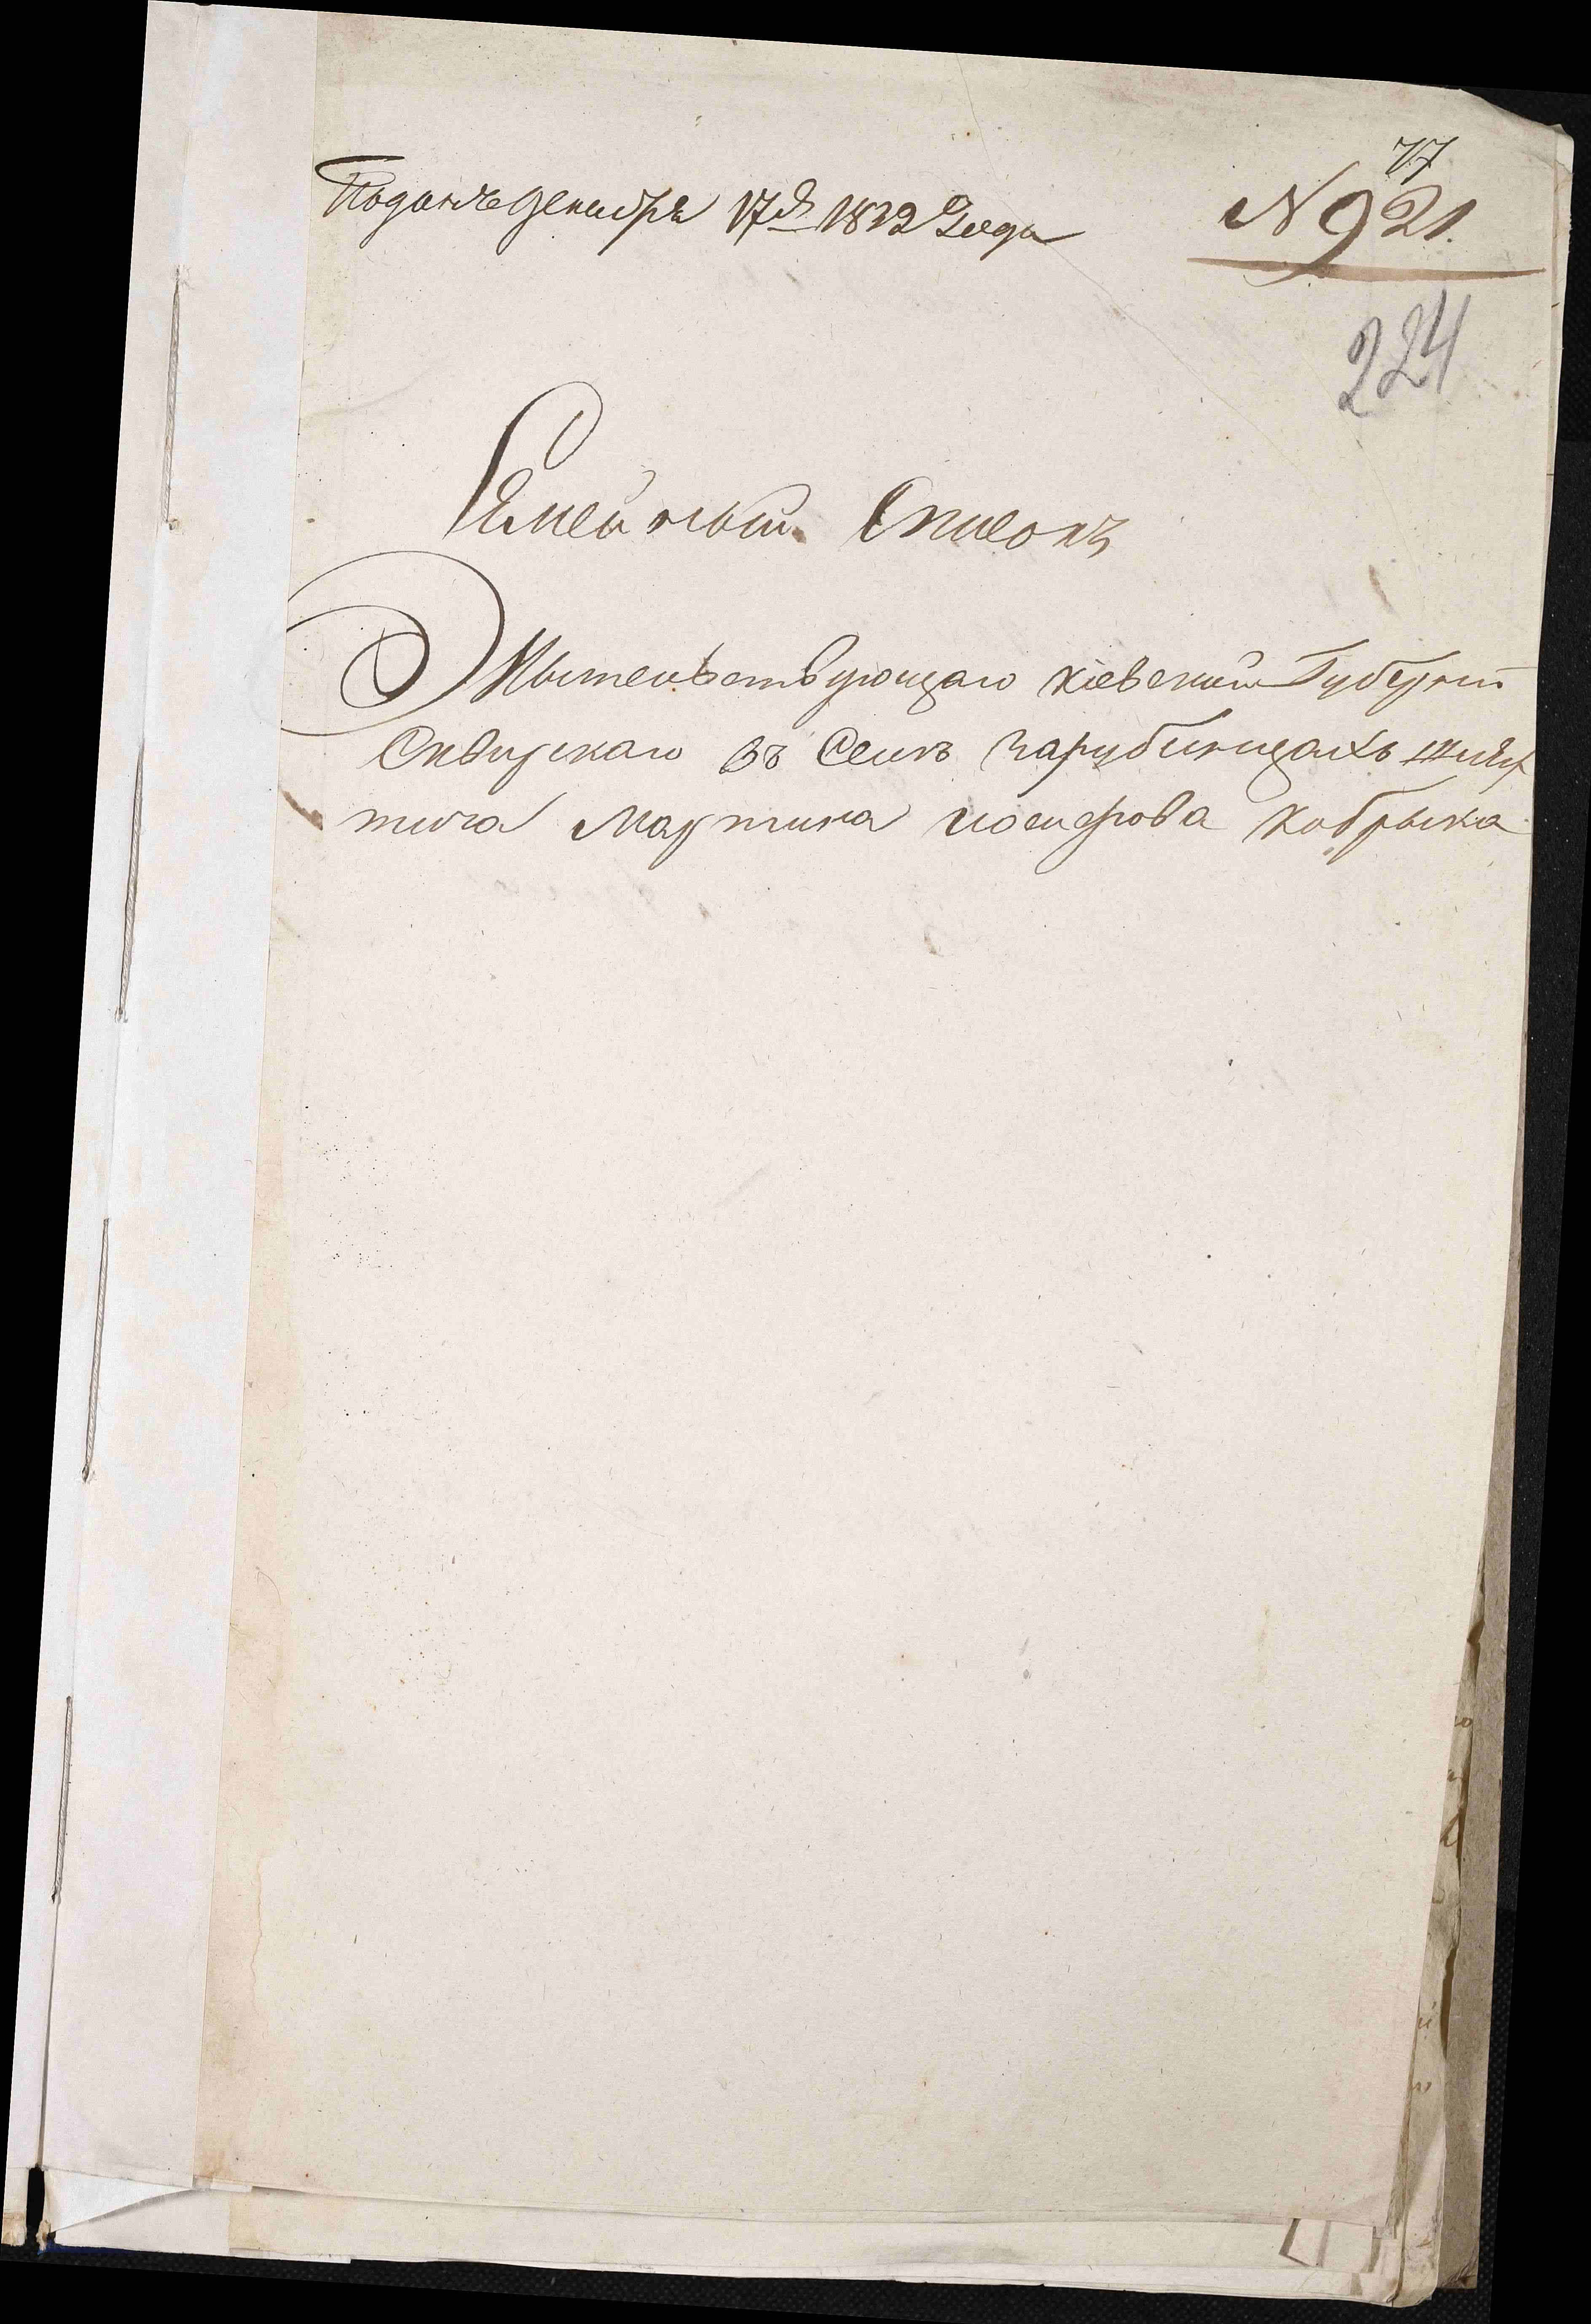 77
Поданъ декабря 17го 1832 года
N 921.
224
Семейный Списокъ
Жытельствующаго Кіевской Губерніи
Сквирскаго въ Селе Чарубинцахъ шлях
тича Мартина иосифова Кобрына